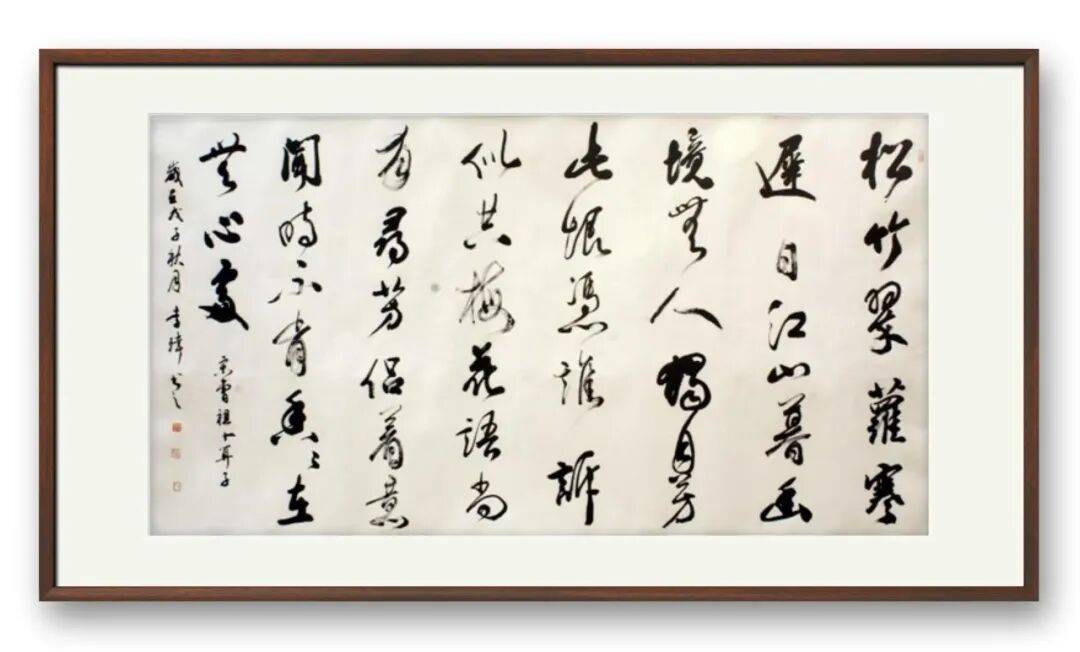 松竹翠蘿寒
遲日江山暮幽
境無人獨自芳
此恨憑誰訴
似共梅花語尚
有尋芳侶着意
聞時不肯香々在
無心處
宋曹組卜算子
歲在戊子秋月 李書之